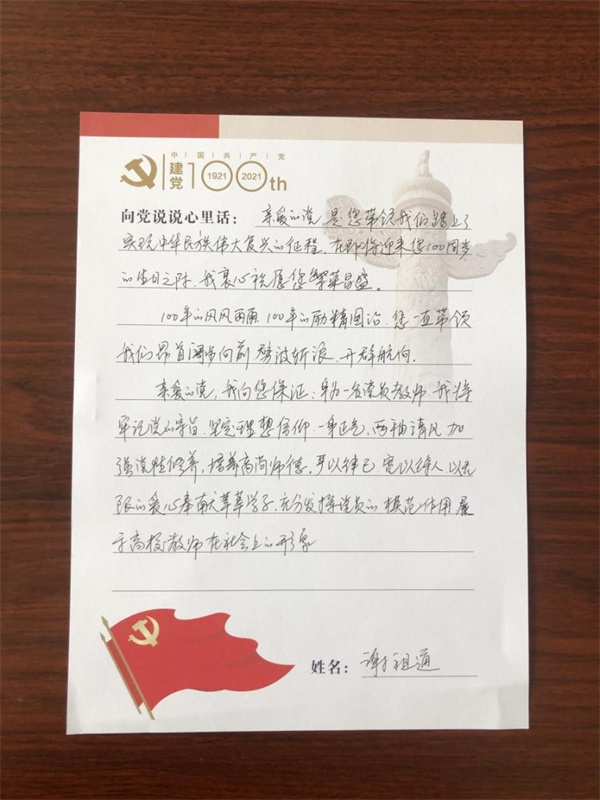 中国共产党
建党100th
1921 2021
向党说说心里话：亲爱的党，是您带领我们踏上了
实现中华民族伟大复兴的征程，在即将迎来您100周岁
的生日之际，我衷心祝愿您繁荣昌盛。
100年的风风雨雨，100年的励精图治，您一直带领
我们昂首阔步向前，劈波斩浪，开辟航向。
亲爱的党，我向您保证：身为一名党员教师，我将
牢记党的宗旨，坚定理想信仰，一身正气，两袖清风，加
强党性修养，培养高尚师德，严以律己，宽以待人，以无
限的爱心奉献莘莘学子，充分发挥党员的模范作用，展
示高校教师在社会上的形象
姓名：谢祖通